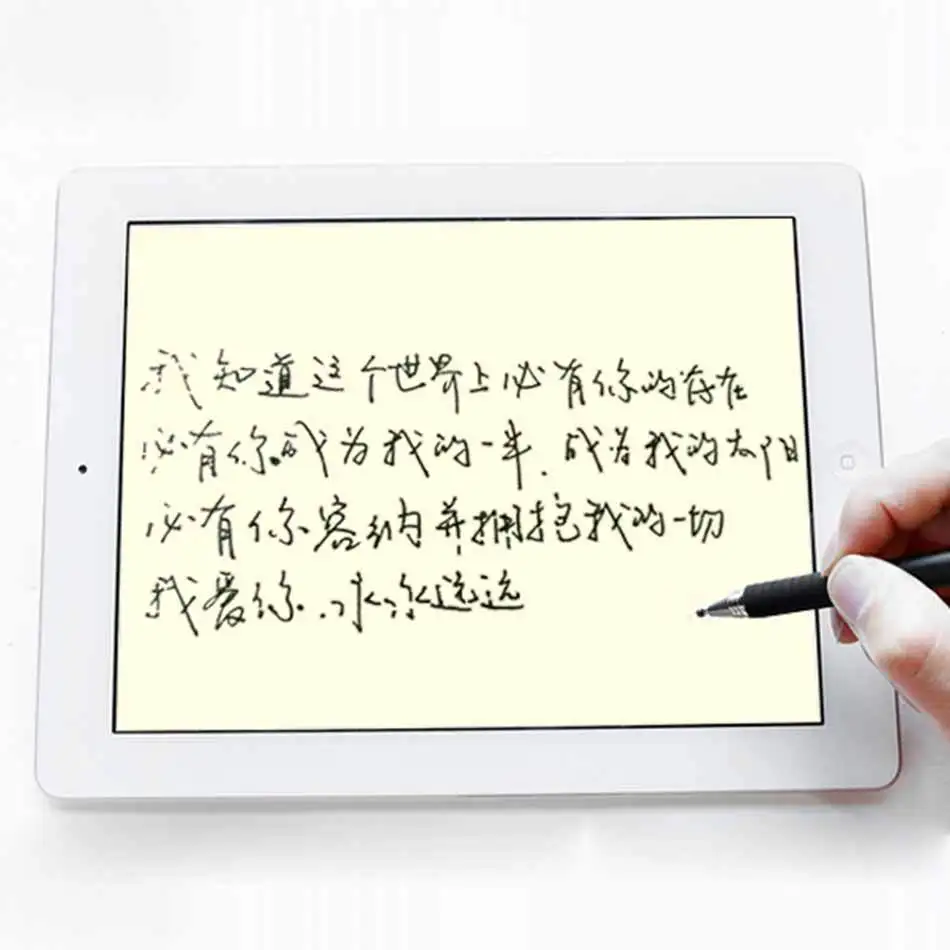 我知道这个世界上必有你的存在
必有你.成为我的一半.成为我的太阳
必有你容纳并拥抱我的一切
我爱你.永永远远